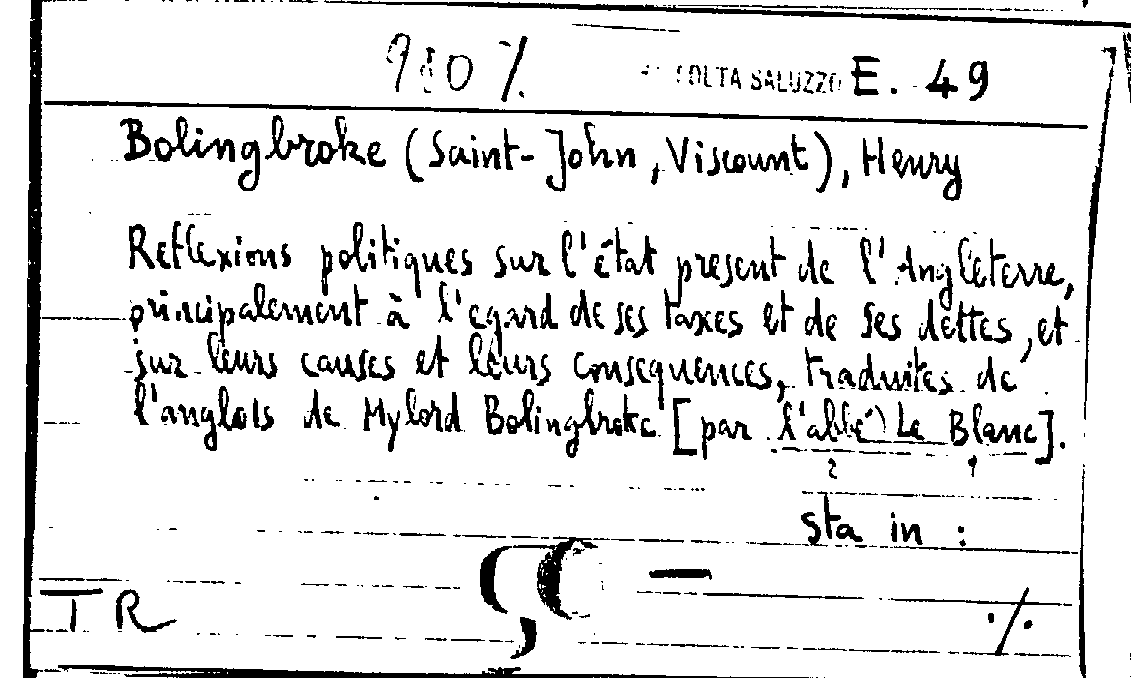 980 ./. COLTA SALUZZO E. 49
Bolingbroke (Saint-John, Viscount), Henry
Reflexions politiques sur l'état present de l'Angleterre,
principalement à l'egard de ses taxes et de ses dettes, et
sur leurs causes et leurs consequences, traduites de
l'anglois de Mylord Bolingbroke [par l'abbé) Le Blanc].
2 1
sta in :
TR ./.